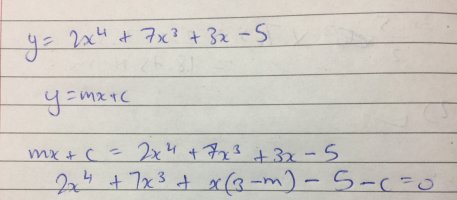 y = 2x⁴ + 7x³ + 3x - 5
y = mx + c
mx + c = 2x⁴ + 7x³ + 3x - 5
2x⁴ + 7x³ + x(3-m) - 5 - c = 0